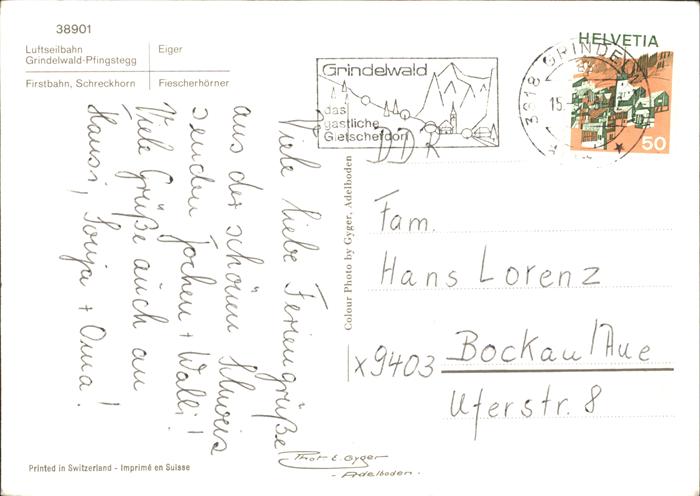 38901
Luftseilbahn
Grindelwald-Pfingstegg
Eiger
Firstbahn, Schreckhorn
Fiescherhörner
Grindelwald
das
gastliche
Gletscherdorf
3818 GRINDELW
15.
HELVETIA
50
DDR
Viele liebe Feriengrüße
aus der schönen Schweiz
senden Jochen + Walli!
Viele Grüße auch an
Hanssi, Sonja + Oma!
Colour Photo by Gyger, Adelboden
Fam.
Hans Lorenz
x9403 Bockau/Aue
Uferstr. 8
Phot E. Gyger
- Adelboden -
Printed in Switzerland - Imprimé en Suisse